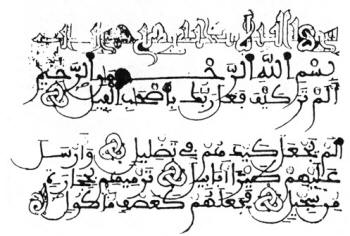 سورة الفيل
بسم الله الرحمن الرحيم
ألم تر كيف فعل ربك بأصحب الفيل
ألم يجعل كيدهم في تضليل وأرسل
عليهم طيرا أبابيل ترميهم بحجارة
من سجيل فجعلهم كعصف مأكول